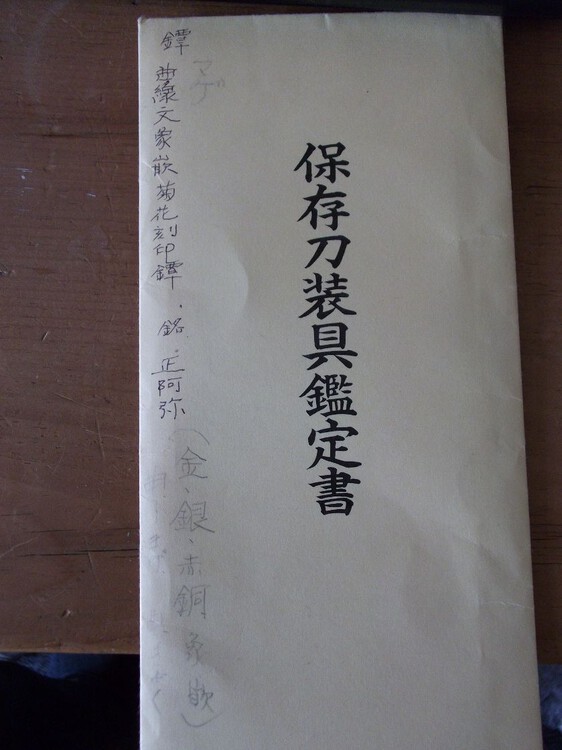 保存刀装具鑑定書
マゲ
(金、銀、赤銅象嵌)
鐔 曲線文象嵌菊花刻印鐔、銘、正阿弥